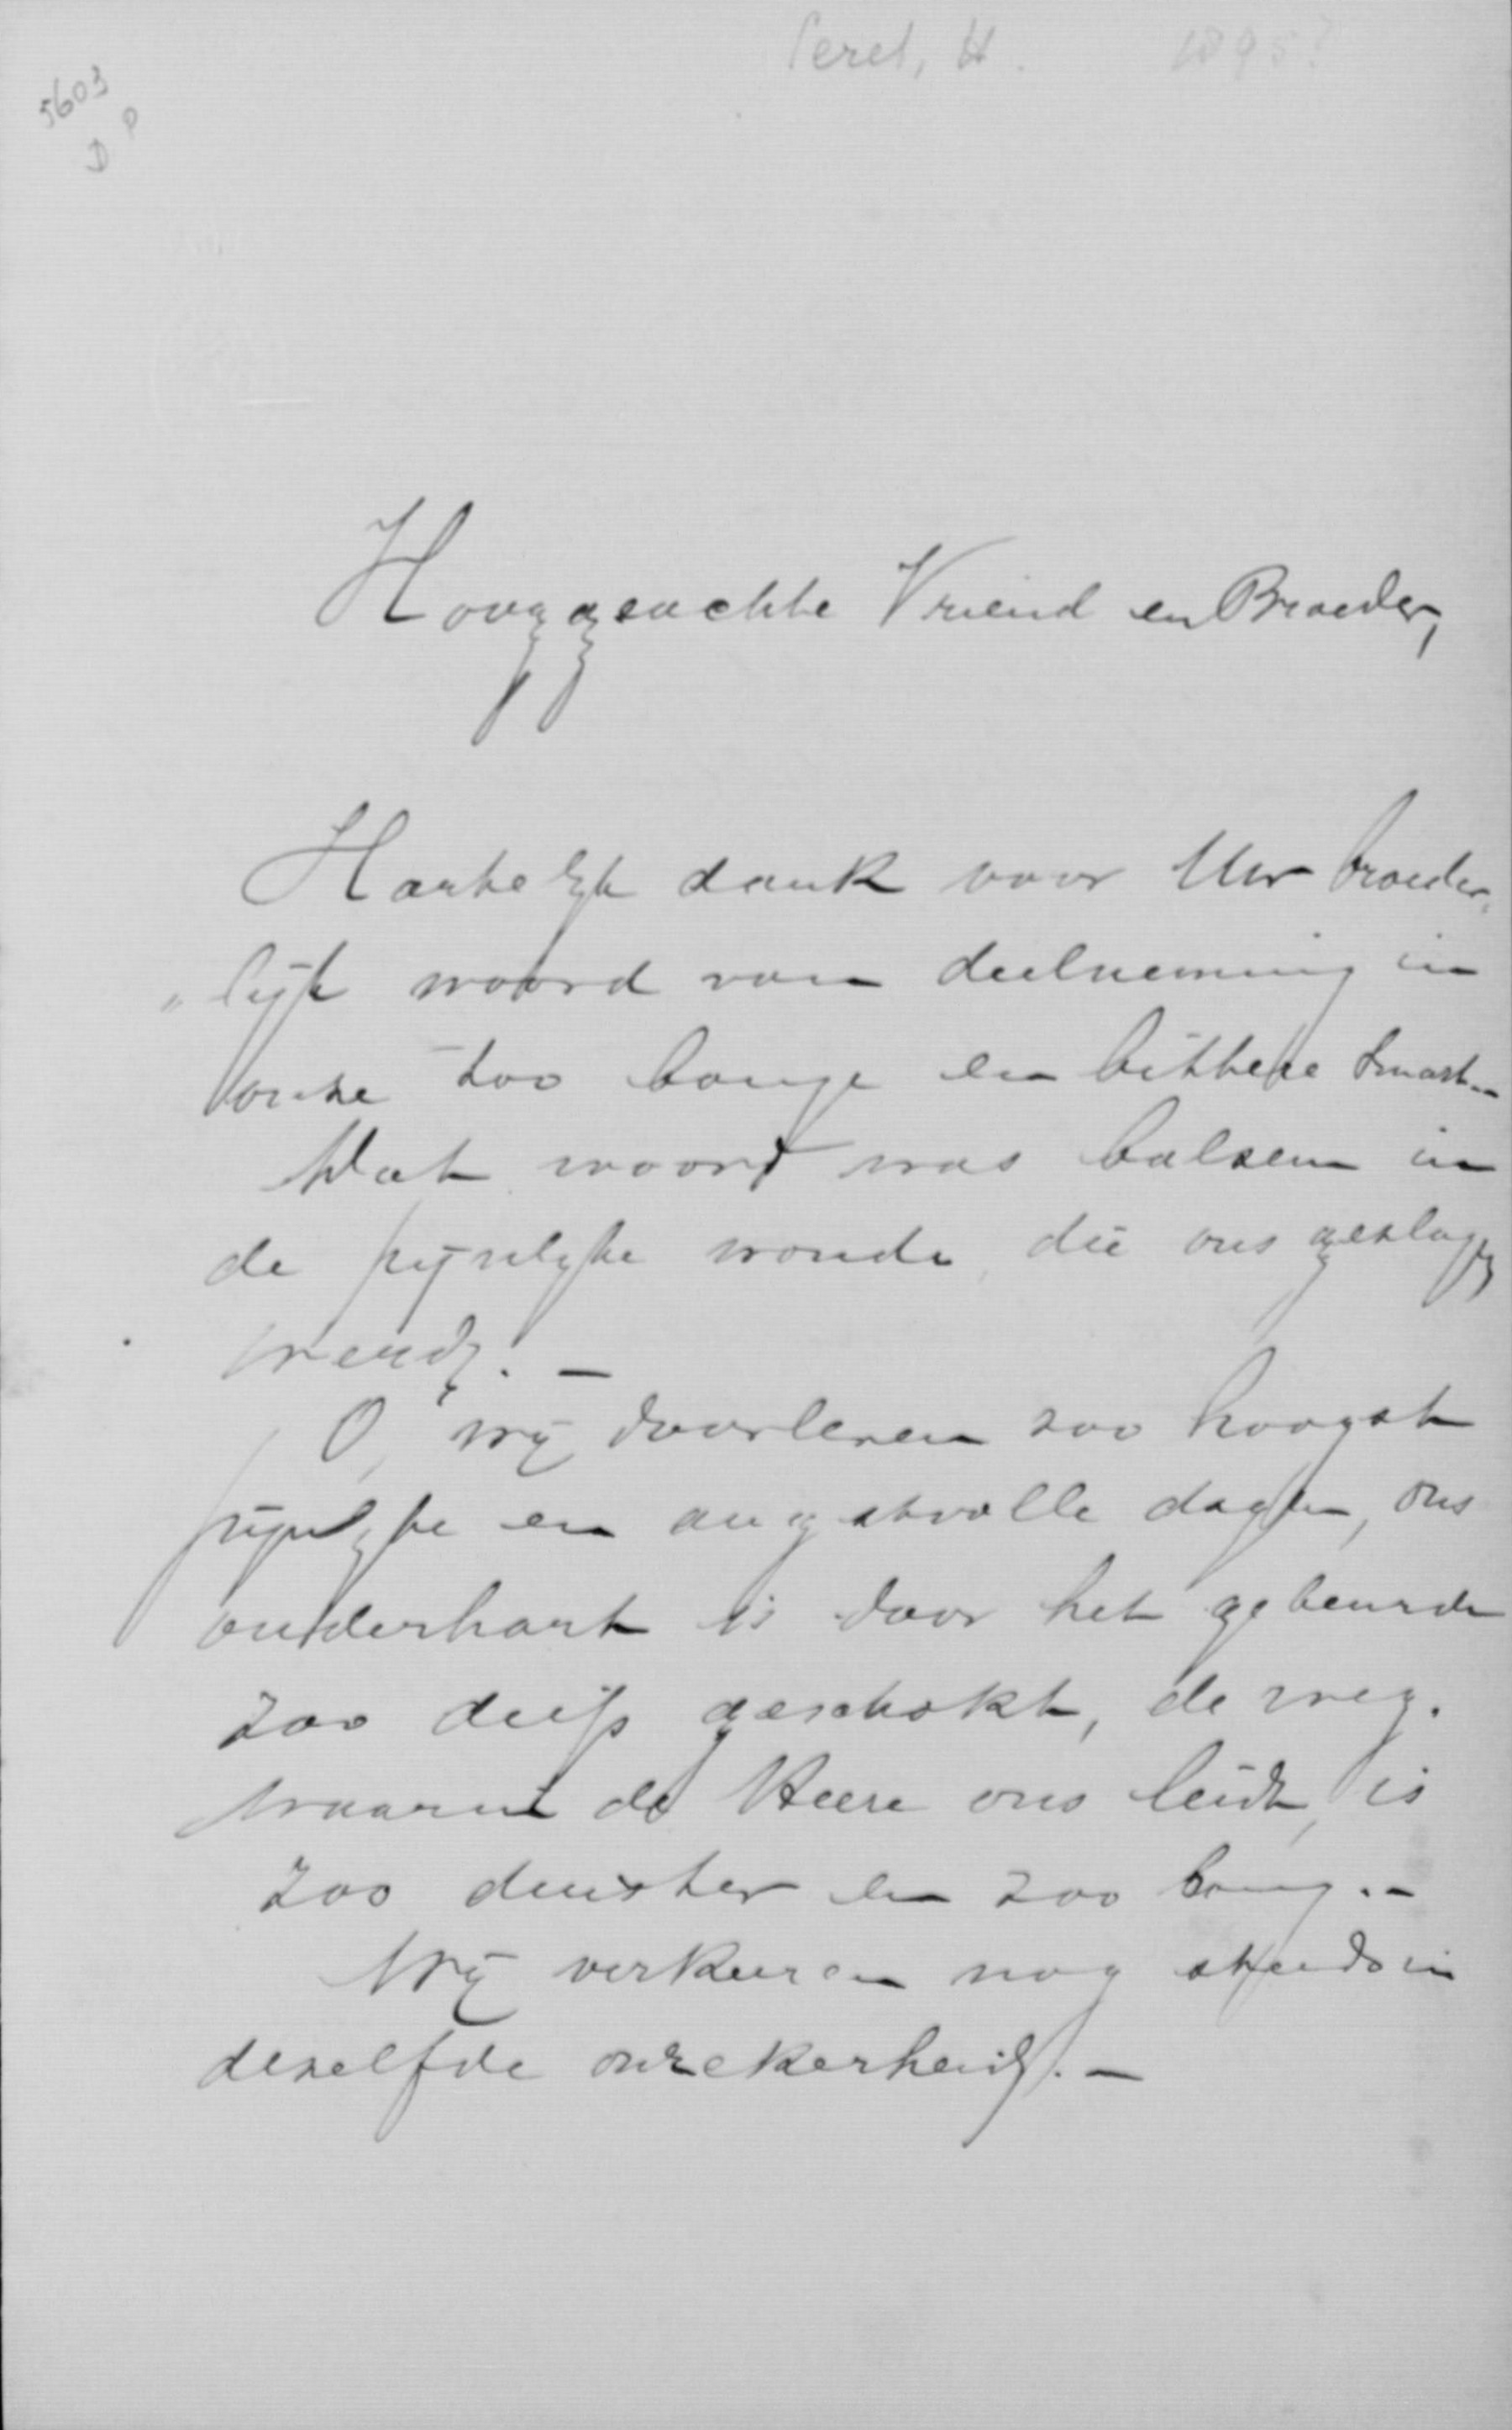 5603
D P
H. 1895?
Hooggeachte Vriend en Broeder,
Hartelijk dank voor Uw broeder„
„lijk woord van deelneming in
onze zoo bange en bittere smart.–
Dat woord was balsem in
de pijnlijke wonde, die ons geslagen
werd. –
O, wij doorleven zoo hoogst
pijnlijke en angstvolle dagen, ons
ouderhart is door het gebeurde
zoo diep geschokt, de weg.
waarin de Heere ons leidt, is
zoo duister en zoo bang. –
Wij verkeeren nog steeds in
dezelfde onzekerheid. –